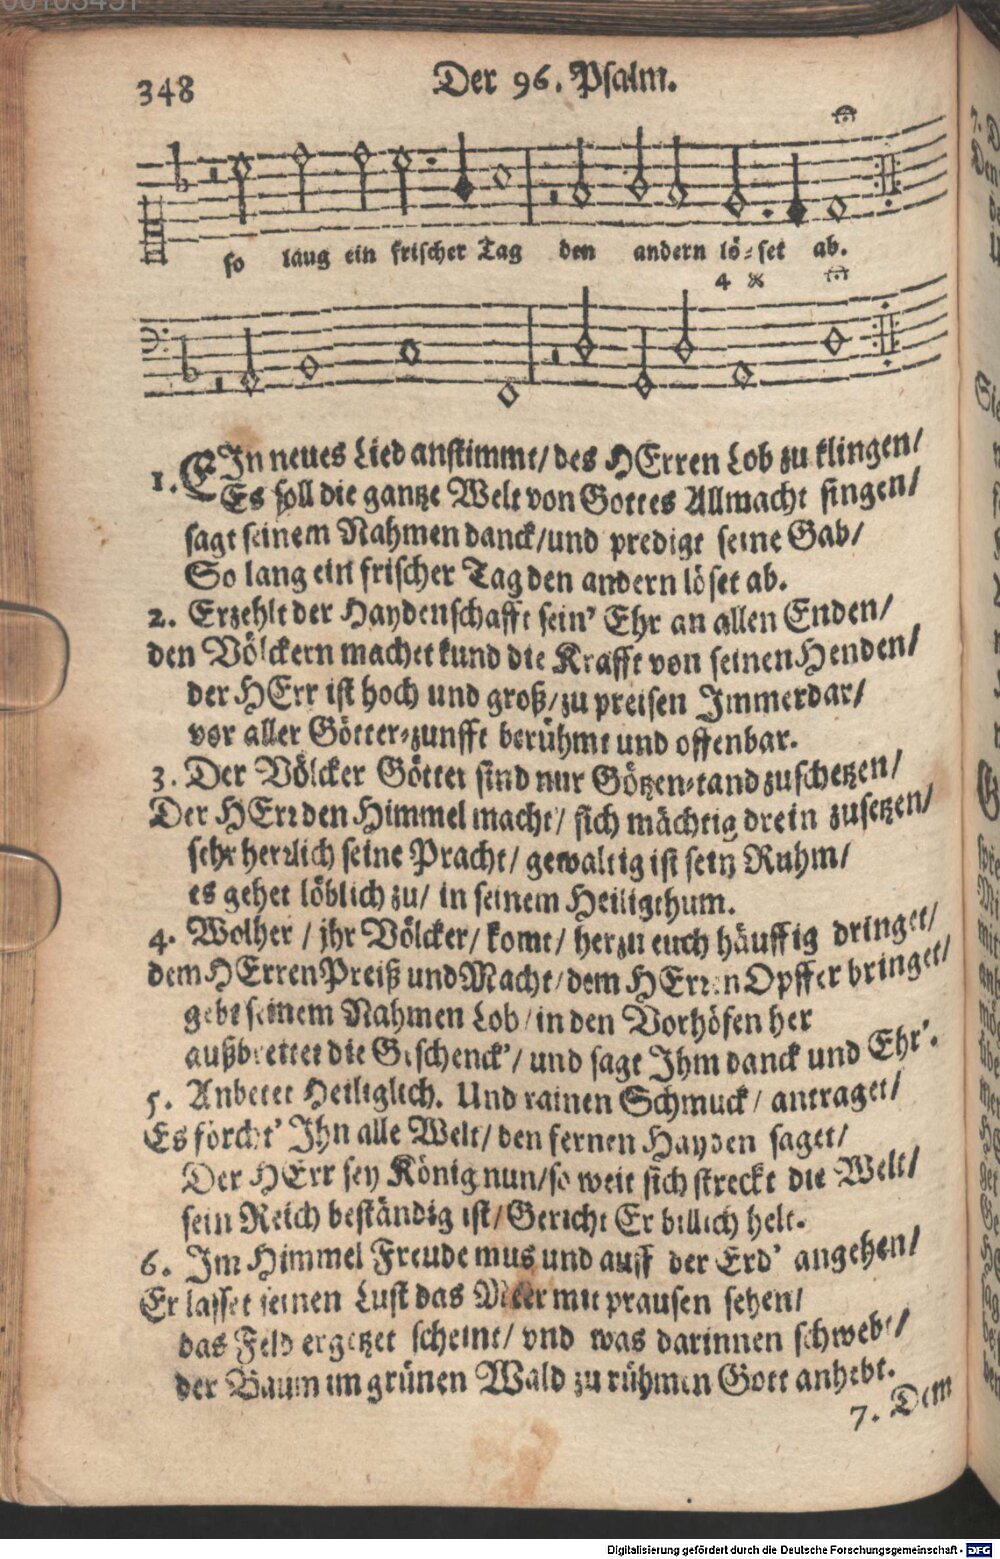 348 Der 96. Psalm.
so lang ein frischer Tag den andern lö-set ab.
4
1. EIn neues Lied anstimmt/ des HErren Lob zu klingen/
Es soll die gantze Welt von Gottes Allmacht singen/
sagt seinem Nahmen danck/ und predigt seine Gab/
So lang ein frischer Tag den andern löset ab.
2. Erzehlt der Haydenschafft sein' Ehr an allen Enden/
den Völckern machet kund die Krafft von seinen Henden/
der HErr ist hoch und groß/ zu preisen Immerdar/
vor aller Götter-zunfft berühmt und offenbar.
3. Der Völcker Götter sind nur Götzen-tand zuschetzen/
Der HErr den Himmel macht/ sich mächtig drein zusetzen/
sehr herrlich seine Pracht/ gewaltig ist sein Ruhm/
es gehet löblich zu/ in seinem Heiligthum.
4. Wolher / jhr Völcker/ komt/ herzu euch häuffig dringet/
dem HErren Preiß und Macht/ dem HErren Opffer bringet/
gebt seinem Nahmen Lob/ in den Vorhöfen her
außbreitet die Geschenck'/ und sagt Ihm danck und Ehr'.
5. Anbetet Heiliglich. Und rainen Schmuck/ antraget/
Es förcht' Ihn alle Welt/ den fernen Hayden saget/
Der HErr sey König nun/ so weit sich streckt die Welt/
sein Reich beständig ist/ Gericht Er billich helt.
6. Im Himmel Freude mus und auff der Erd' angehen/
Er lasset seinen Lust das Meer mit prausen sehen/
das Feld ergetzet scheint/ vnd was darinnen schwebt/
der Baum im grünen Wald zu rühmen Gott anhebt.
7. Dem
Digitalisierung gefördert durch die Deutsche Forschungsgemeinschaft - DFG